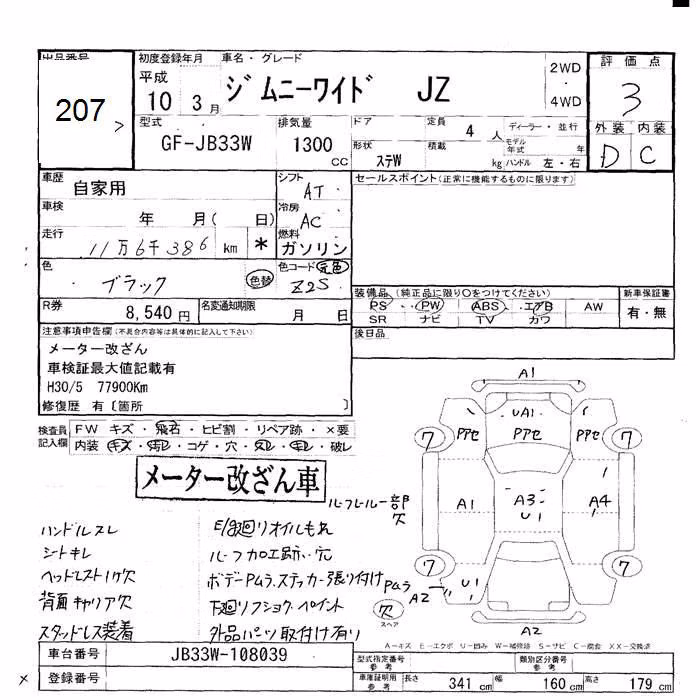 出品番号
207
初度登録年月
平成
10 3 月
車名・グレード
ジムニーワイド JZ
2WD
・
4WD
評価点
3
外装 内装
D C
型式
GF-JB33W
排気量
1300
CC
ドア
定員
4 人
形状
ステW
積載
kg
ディーラー・並行
モデル年式 年
ハンドル 左・右
車歴
自家用
車検
年 月( 日)
走行
11万6千386 km *
シフト
AT
冷房
AC
燃料
ガソリン
セールスポイント(正常に機能するものに限ります)
色
ブラック
色替
色コード 元色
Z2S
R券
8,540 円
名変通知期限
月 日
装備品(純正品に限り○をつけてください)
PS PW ABS エアB AW
SR ナビ TV カワ
新車保証書
有・無
後日品
注意事項申告欄(不具合内容等は具体的に記入して下さい)
メーター改ざん
車検証最大値記載有
H30/5 77900Km
修復歴 有〔箇所 〕
検査員記入欄
FW キズ・飛石・ヒビ割・リペア跡・×要
内装 キズ・汚レ・コゲ・穴・スレ・キレ・破レ
メーター改ざん車
ハンドルスレ
シートキレ
ヘッドレスト1ケ欠
背面キャリア欠
スタッドレス装着
E/g廻りオイルもれ
ルーフ加工跡、穴
ボデーPムラ、ステッカー張り付け
下廻りフショク・ペイント
外品パーツ取付け有り
ルーフレール一部
欠
A1
UA1
Pアセ Pアセ Pアセ
7 7
A1 A3 A4
U1
7 7
Pムラ
A2
U1
欠
スペア
A2
A-キズ E-エクボ U-凹み W-補修跡 S-サビ C-腐食 XX-交換済
車台番号
JB33W-108039
登録番号
×
型式指定番号
参考
類別区分番号
参考
車庫証明用
参考
長さ 341 cm 幅 160 cm 高さ 179 cm